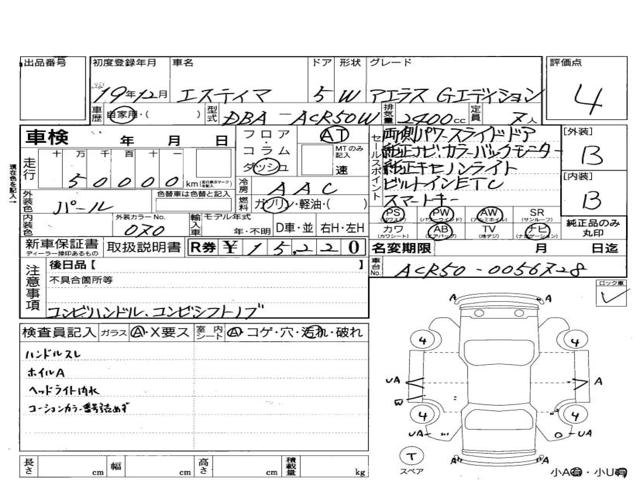 出品番号 初度登録年月 車名 ドア 形状 グレード 評価点
19年12月 エスティマ 5 W アエラス Gエディション 4
車歴 自家用・( ) 型式 DBA-ACR50W 排気量 2400cc 定員 7人
車検 年 月 日
フロア コラム ダッシュ AT MTのみ記入 速
セールスポイント
両側パワースライドドア
純正ナビ・カラーバックモニター
純正キセノンライト
ビルトインETC
スマートキー
[外装] B
[内装] B
走行 十 万 千 百 十 一
50000 km
冷房 AAC
外装色 パール 色替車は元色と記入
燃料 ガソリン・軽油・( )
内装色 外装カラーNo. 070 輸入車 モデル年式 年・不明 D車・並 右H・左H
PS PW AW SR
(パワーウィンドウ) (アルミホイル) (サンルーフ)
カワ AB TV ナビ
(レザーシート) (エアバッグ) (地デジ) (ナビゲーション)
純正品のみ丸印
新車保証書 取扱説明書 R券 ¥15,220
ディーラー捺印あるもの
名変期限 月 日迄
車台No. ACR50-0056728
注意事項
後日品[ ]
不具合箇所等
コンビハンドル、コンビシフトノブ
ロック車
検査員記入 ガラス A・X要ス 室内シート A・コゲ・穴・汚れ・破れ
ハンドルスレ
ホイルA
ヘッドライト内水
コーションカラー番号読めず
A
4 4
UA A
W
4 4
UA UA
T
スペア A
小A有・小U有
長さ cm 幅 cm 高さ cm 積載量 kg
現在色を記入